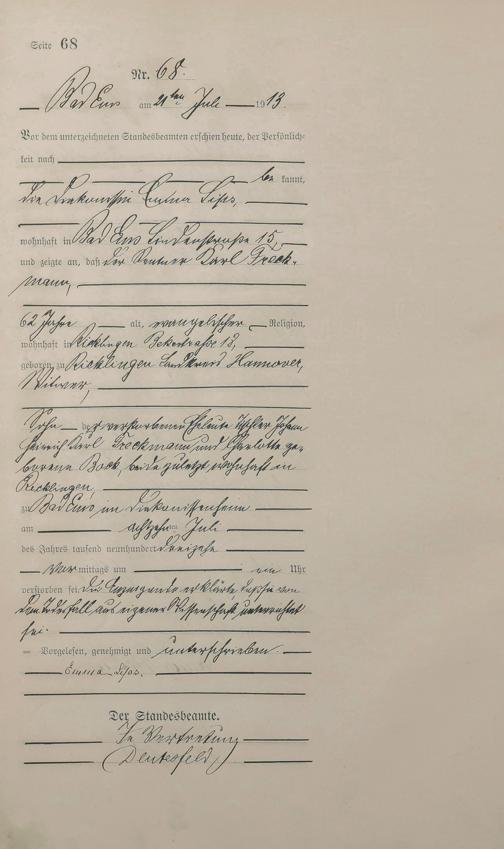 Seite 68
Nr. 68.
Bad Ems am 21ten Juli 1913.
Vor dem unterzeichneten Standesbeamten erschien heute, der Persönlich-
keit nach
be kannt,
die Diakonissin Emma
wohnhaft in Bad Ems Lindenstraße 15,
und zeigte an, daß der Rentner Karl Freck-
mann,
62 Jahre alt, evangelischer Religion,
wohnhaft in Ricklingen
geboren zu Ricklingen Landkreis Hannover,
Witwer,
Sohn der verstorbenen Eheleute Tischler Johann
Heinrich Karl Freckmann und Charlotte ge-
borene Bock, beide zuletzt wohnhaft in
Ricklingen,
zu Bad Ems im Diakonissenheim
am achtzehnten Juli
des Jahres tausend neunhundert dreizehn
Vor mittags um ein Uhr
verstorben sei. Die Anzeigende erklärte daß sie von
dem Todesfall aus eigener Wissenschaft unterrichtet
sei.
Vorgelesen, genehmigt und unterschrieben.
Emma
Der Standesbeamte.
In Vertretung